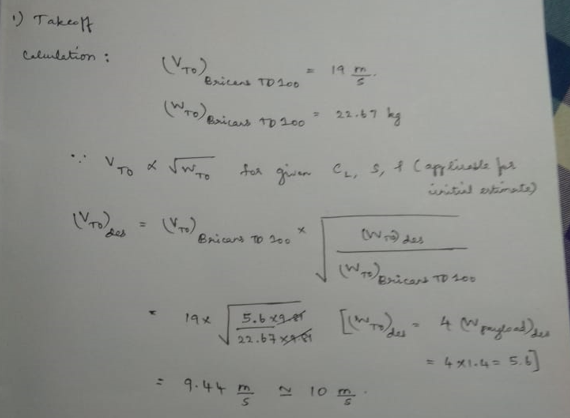 1) Takeoff
Calculation : (V_TO)_Bricans TD 200 = 19 m/s.
(W_TO)_Bricans TD 200 = 22.67 kg
∵ V_TO ∝ √W_TO for given C_L, S, f (applicable for
initial estimate)
(V_TO)_des = (V_TO)_Bricans TD 200 × √((W_TO)_des / (W_TO)_Bricans TD 200)
= 19 × √(5.6 × 9.81 / 22.67 × 9.81) [(W_TO)_des = 4 (W_payload)_des
= 4 × 1.4 = 5.6]
= 9.44 m/s ≃ 10 m/s.